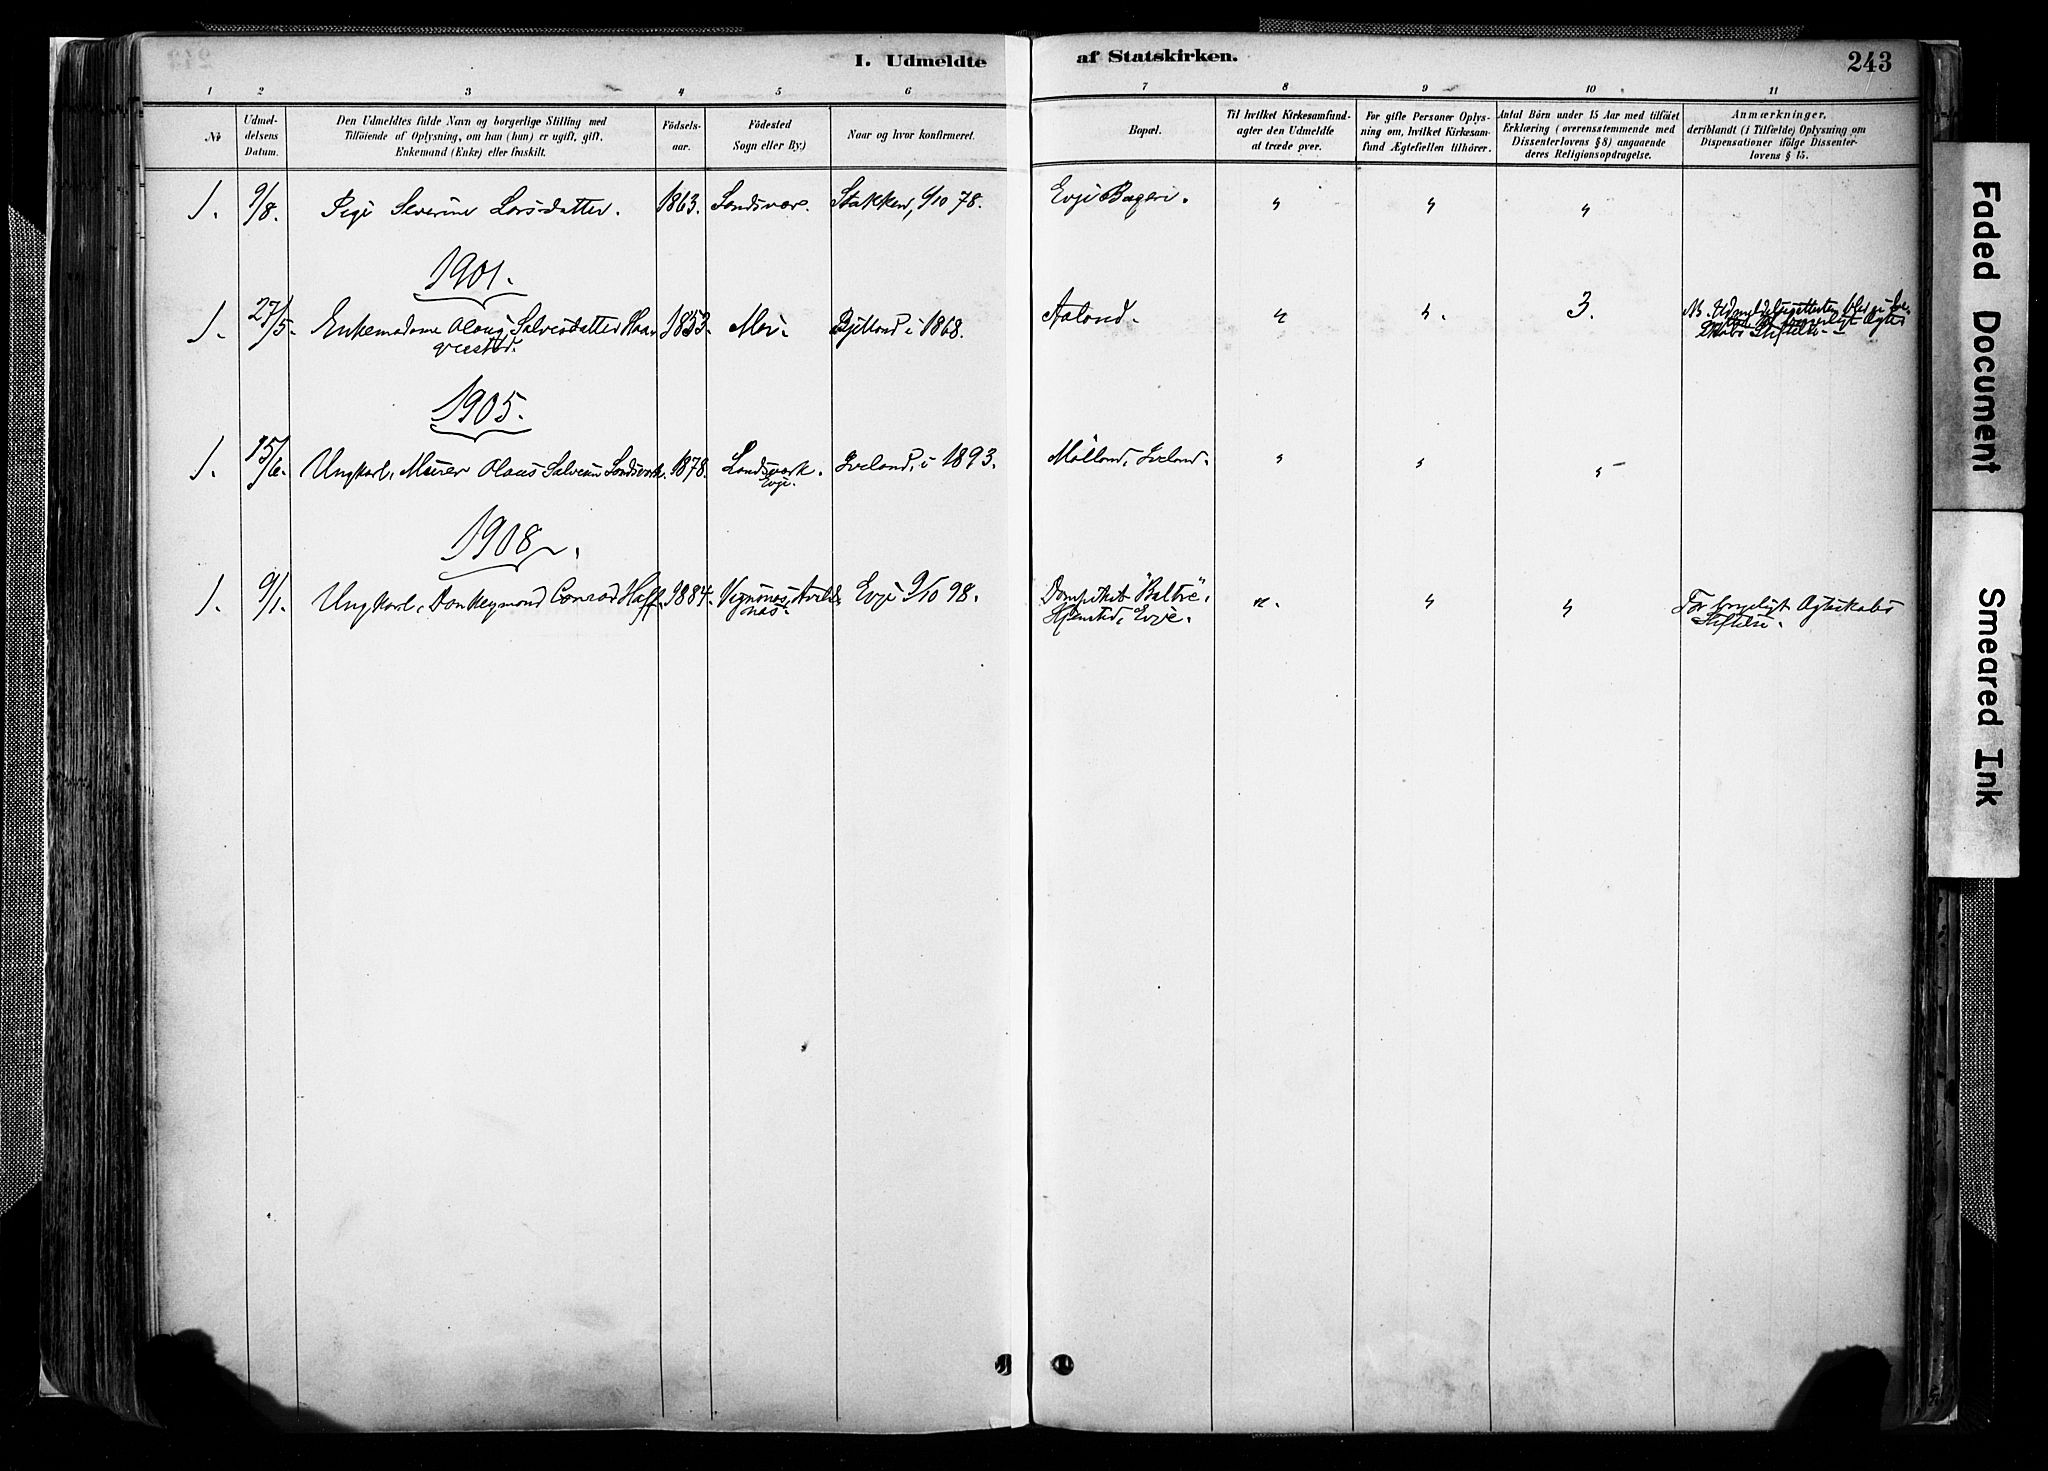 I. Udmeldte af Statskirken. 243
1 2 3 4 5 6 7 8 9 10 11
Nr
Udmel-
delsens
Datum.
Den Udmeldtes fulde Navn og borgerlige Stilling med
Tilföiende af Oplysning, om han (hun) er ugift, gift,
Enkemand (Enke) eller fraskilt.
Födsels-
aar.
Födested
Sogn eller By.)
Naar og hvor konfirmeret.
Bopæl.
Til hvilket Kirkesamfund-
agter den Udmeldte
at træde over.
For gifte Personer Oplys-
ning om, hvilket Kirkesam-
fund Ægtefællen tilhörer.
Antal Börn under 15 Aar med tilföiet
Erklæring (overensstemmende med
Dissenterlovens § 8) angaaende
deres Religionsopdragelse.
Anmærkninger,
deriblandt (i Tilfælde) Oplysning om
Dispensationer ifölge Dissenter-
lovens § 15.
1. 9/8. Severine Larsdatter. 1863. Stokken, 6/10 78. Evje Bageri. " " "
1901.
1. 27/5. Enkemadame Olaug Salvesdatter Haa- 1853. Bjelland i 1868. Aaland. " ". 3.
versted.
skabs Stiftelse.
1905.
1. 15/6. Ungkarl, Murer Olaus Salvesen Landsverk. 1878. Landsverk. Iveland, i 1893. Mölland, Iveland. " " "
Evje.
1908.
1. 9/1. Ungkarl, Conrad Haff. 1884. Evje 9/10 98. ". " " For borgerligt Ægteskabs
næs. Evje. Stiftelse.
Faded Document
Smeared Ink